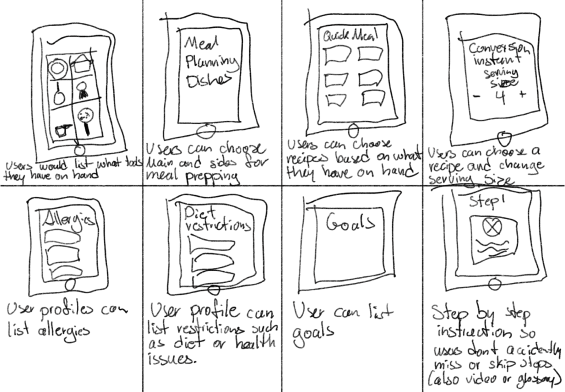 Users would list what tools
they have on hand
Meal
Planning
Dishes
Users can choose
Main and sides for
meal prepping
Quick Meal
Users can choose
recipes based on what
they have on hand
Conversion
instant
serving
size
- 4 +
Users can choose a
recipe and change
serving size
Allergies
User profiles can
list allergies
Diet
restrictions
User profile can
list restrictions such
as diet or health
issues.
Goals
User can list
goals
Step 1
Step by step
instruction so
users dont accidently
miss or skip steps
(also video or glossary)